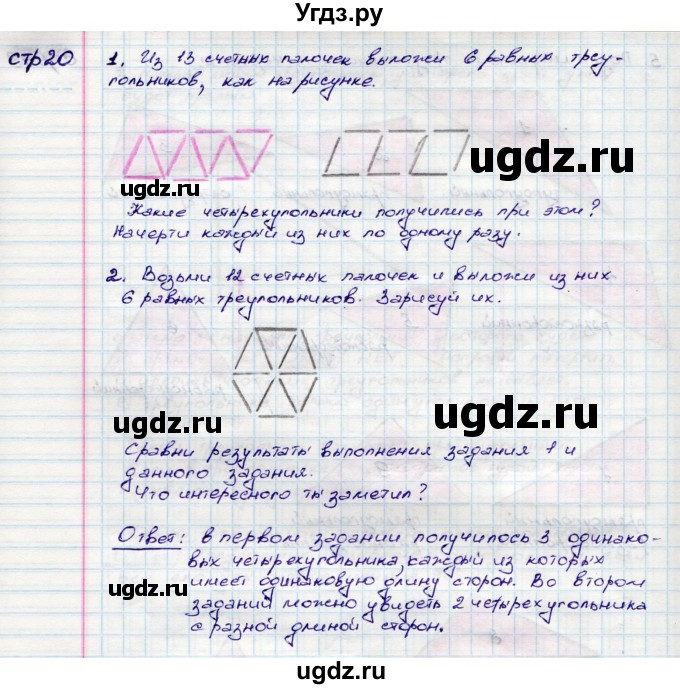 Угдз.ру
стр20
1. Из 13 счетных палочек выложи 6 равных треу-
гольников, как на рисунке.
ugdz.ru
ugdz.ru
Какие четырехугольники получились при этом?
Начерти каждый из них по одному разу.
2. Возьми 12 счетных палочек и выложи из них
6 равных треугольников. Зарисуй их.
ugdz.ru
ugdz.ru
Сравни результаты выполнения задания 1 и
данного задания.
Что интересного ты заметил?
Ответ: в первом задании получилось 3 одинако-
вых четырехугольника, каждый из которых
имеет одинаковую длину сторон. Во втором
задании можно увидеть 2 четырехугольника
с разной длиной сторон.
ugdz.ru
ugdz.ru